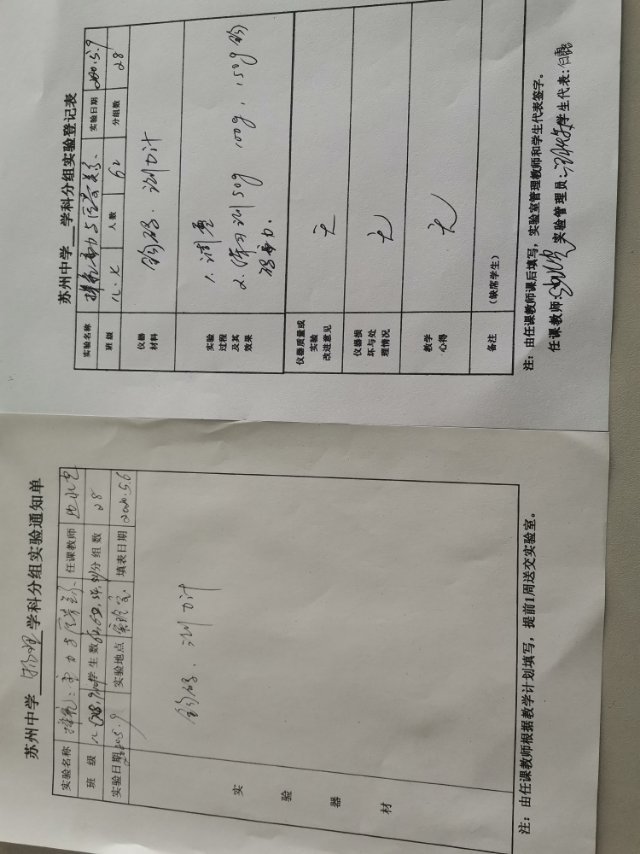 苏州中学 物理 学科分组实验通知单
实验名称 探究:重力与质量关系 任课教师
班级 学生数 分组数 28
实验日期 2020.5.9 实验地点 实验室 填表日期 2020.5.6
实验器材
钩码、测力计
注:由任课教师根据教学计划填写,提前1周送交实验室。
苏州中学 学科分组实验登记表
实验名称 探究重力与质量关系、 实验日期 2020.5.9
班级 八.七 人数 62 分组数 28
仪器材料 钩码、测力计
实验过程及其效果 1.调零
2.练习测50g 100g、150g的
重力.
仪器质量或实验改进意见 无
仪器损坏与处理情况 无
教学心得 无
备注 (缺席学生)
注:由任课教师课后填写,实验室管理教师和学生代表签字。
任课教师: 实验管理员: 学生代表: